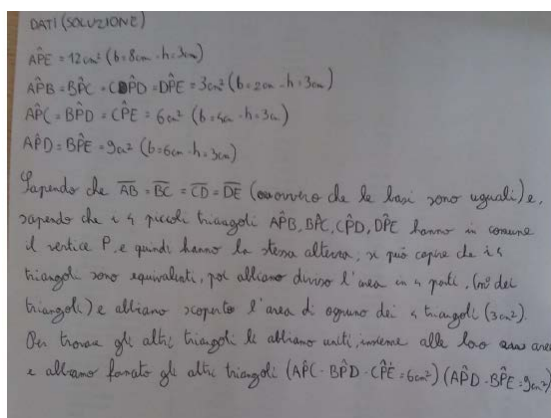 DATI (SOLUZIONE)
AP̂E = 12cm² (b=8cm - h=3cm)
AP̂B = BP̂C = CP̂D = DP̂E = 3cm² (b=2cm - h=3cm)
AP̂C = BP̂D = CP̂E = 6cm² (b=4cm - h=3cm)
AP̂D = BP̂E = 9cm² (b=6cm - h=3cm)
Sapendo che A̅B̅ = B̅C̅ = C̅D̅ = D̅E̅ (ovvero che le basi sono uguali) e,
sapendo che i 4 piccoli triangoli AP̂B, BP̂C, CP̂D, DP̂E hanno in comune
il vertice P, e quindi hanno la stessa altezza, si può capire che i 4
triangoli sono equivalenti, poi abbiamo diviso l'area in 4 parti, (n° dei
triangoli) e abbiamo scoperto l'area di ognuno dei 4 triangoli (3cm²).
Per trovare gli altri triangoli li abbiamo uniti, insieme alle loro aree
e abbiamo formato gli altri triangoli (AP̂C - BP̂D - CP̂E = 6cm²) (AP̂D - BP̂E = 9cm²)